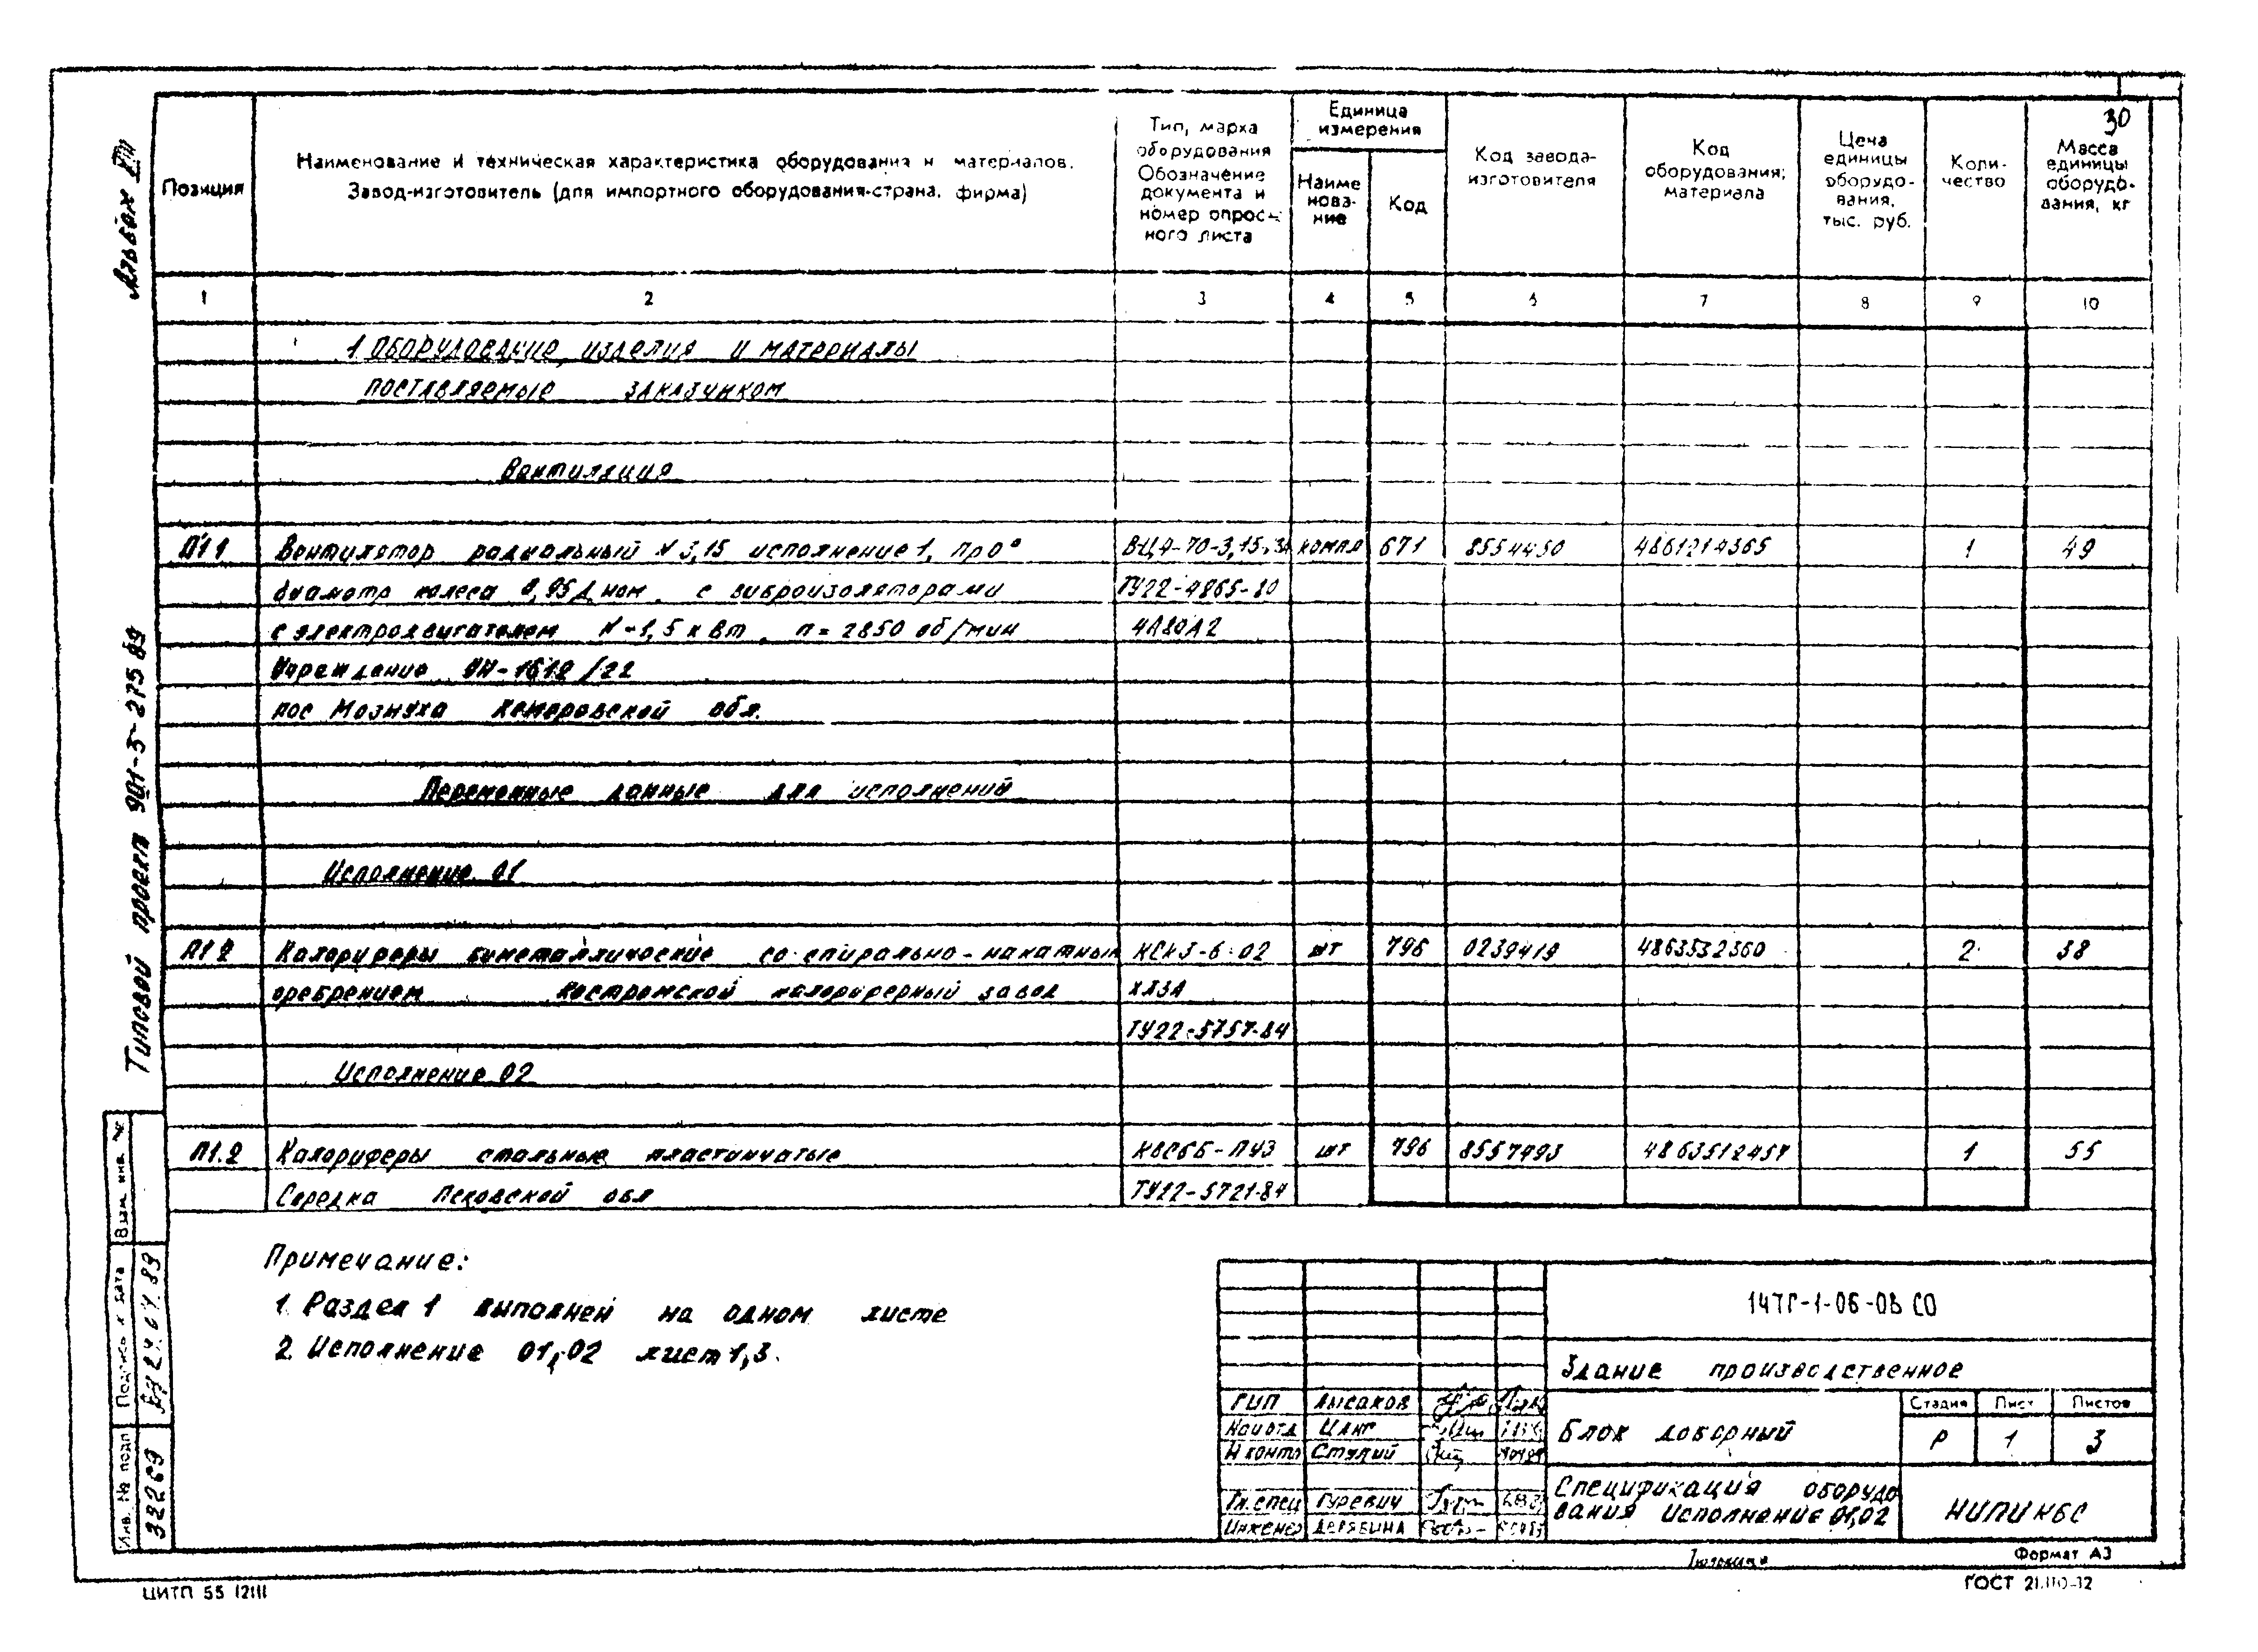 30
Альбом VIII
Типовой проект 901-3-275.89
Позиция
Наименование и техническая характеристика оборудования и материалов.
Завод-изготовитель (для импортного оборудования-страна, фирма)
Тип, марка
оборудования
Обозначение
документа и
номер опрос-
ного листа
Единица
измерения
Наиме
нова-
ние
Код
Код завода-
изготовителя
Код
оборудования;
материала
Цена
единицы
оборудо-
вания,
тыс. руб.
Коли-
чество
Масса
единицы
оборудо-
вания, кг
1 2 3 4 5 6 7 8 9 10
1 ОБОРУДОВАНИЕ, ИЗДЕЛИЯ И МАТЕРИАЛЫ
ПОСТАВЛЯЕМЫЕ ЗАКАЗЧИКОМ
Вентиляция
П1.1 Вентилятор радиальный N 3,15 исполнение 1, Пр0° ВЦ4-70-3,15 компл 671 8554450 4861214365 1 49
диаметр колеса 0,95 Д ном. с виброизоляторами ТУ22-4865-80
с электродвигателем N-1,5 кВт, n=2850 об/мин 4А80А2
Учреждение УН-1612/22
пос Мозжуха Кемеровской обл.
Переменные данные для исполнений
Исполнение 01
П1.2 Калориферы биметаллические со спирально-накатным КСк3-6-02 шт 796 0239419 4863532360 2 38
оребрением Костромской калориферный завод ХЛ3А
ТУ22-5757-84
Исполнение 02
П1.2 Калориферы стальные пластинчатые КВС6Б-ПУ3 шт 796 8557493 4863512457 1 55
Середка Псковской обл ТУ22-5721-84
Примечание:
1. Раздел 1 выполнен на одном листе
2. Исполнение 01,02 лист 1,3.
147Г-1-06-ОВ СО
Здание производственное
ГИП Лысаков
Нач отд Цанг
Н контр Ступий
Гл. спец Гуревич
Инженер Дерябина
Блок доборный
Стадия Лист Листов
Р 1 3
Спецификация оборудо
вания Исполнение 01,02
НИПИКБС
Взам. инв. №
Подпись и дата
24.07.89
Инв. № подл
33269
Формат А3
ЦИТП 55 12111
ГОСТ 21.110-82